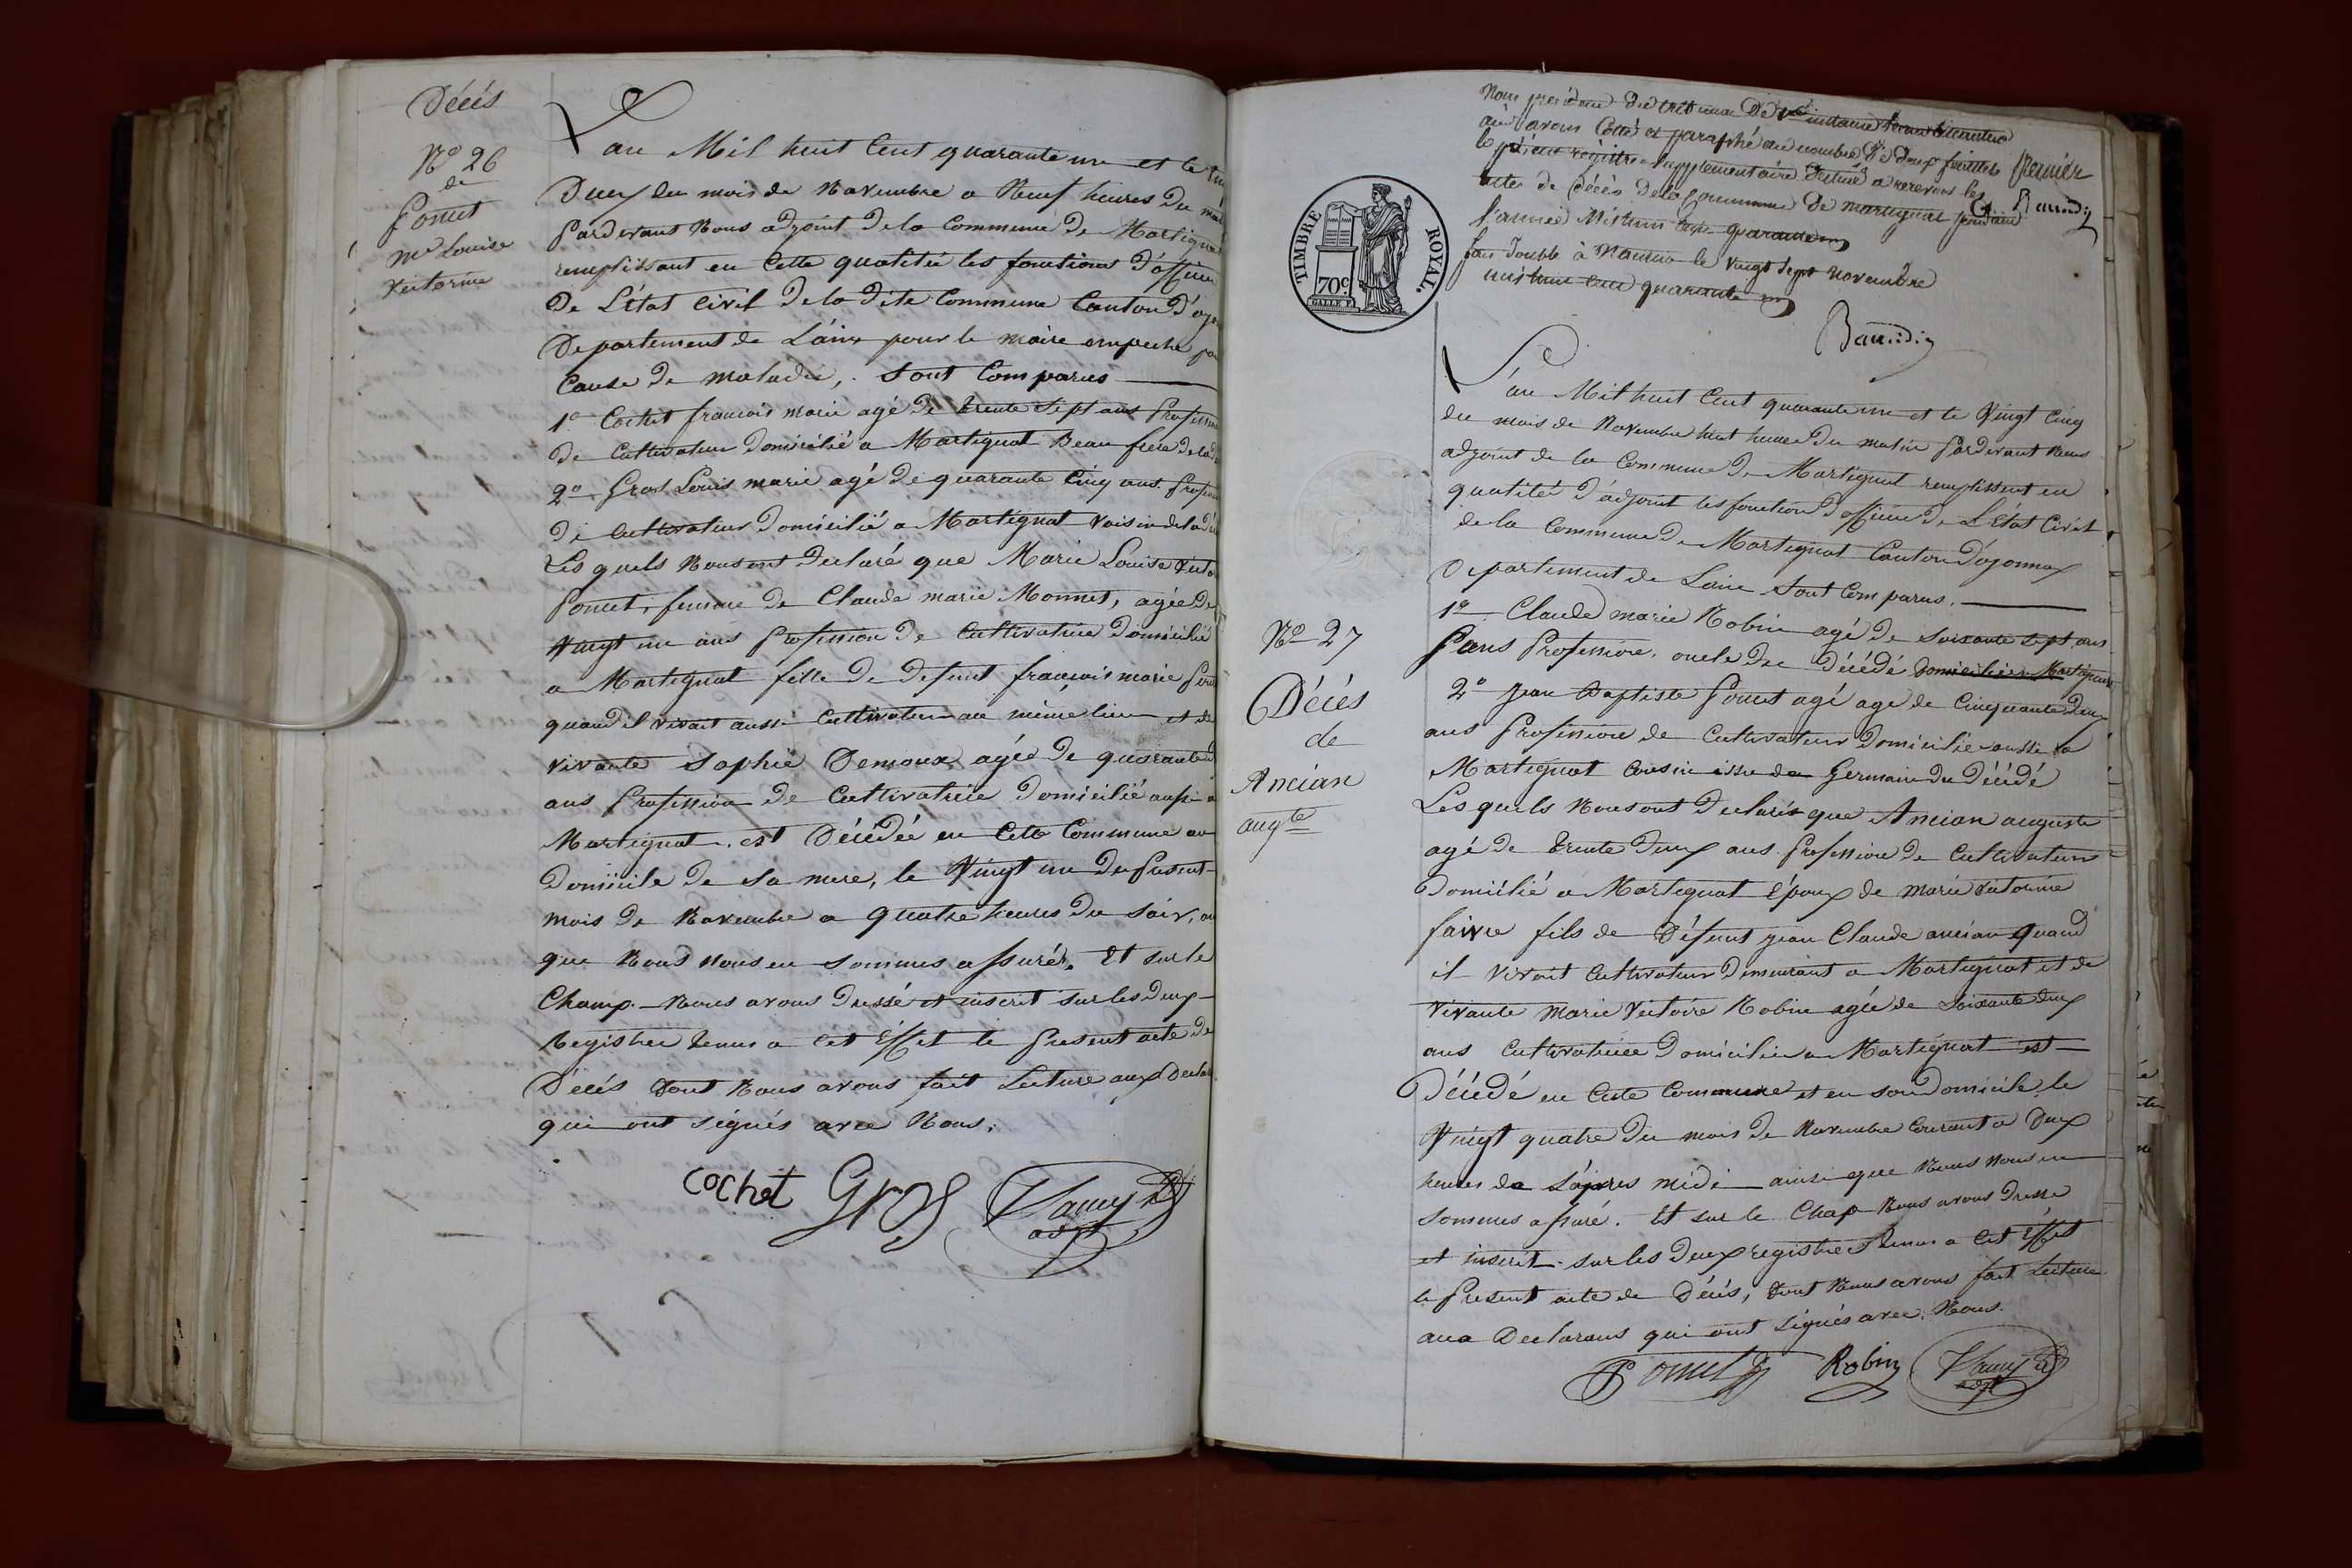 Décés
N° 26
de
Ponet
Me Louise
Victorine
L'an Mil huit Cent quarante un et le
Deux du mois de Novembre a Neuf heures Du
Pardevant Nous adjoint De la Commune De Martignat
remplissant en Cette qualitée les fonctions D'officier
De L'état Civil De la dite Commune Canton D'
Departement de L'ain pour le maire empeché
Cause De maladie, Sont Comparus
1° Cochet francois marie agé De trente Sept ans Profession
de Cultivateur Domicilié a Martignat Beau frere De la
2° Gros Louis marie agé De quarante Cinq ans Profession
De Cultivateur Domicilié a Martignat voisin de la
Les quels Nous ont Declaré que Marie Louise
Ponet, femme De Claude marie Monnet, agée De
Vingt un ans Profession De Cultivatrice Domicilié
a Martignat fille De Defunt francois marie
quand il vivait aussi Cultivateur au même lieu et de
vivante Sophie Demoux agée De quarante
ans Profession De Cultivatrice Domicilié aussi a
Martignat, est Décédée en Cette Commune au
Domicile De Sa mere, le Vingt un Du Present
mois De Novembre a Quatre heures Du Soir,
que Nous Nous en Sommes assurés. Et sur le
Champ Nous avons Dressé et inscrit sur les Deux
Registres tenus a cet Effet le Present acte De
Décés Dont Nous avons fait Lecture aux
qui ont signés avec Nous.
Cochet Gros adjt
TIMBRE ROYAL.
70c.
Nous president du tribunal De
ain avons Cotté et paraphé au nombre De Deux feuillets
le présent régistre supplémentaire Destiné a recevoir les
actes de Décés De la Commune De Martignat pendant
l'année Mil huit Cent quarante un
fait Double à Nantua le vingt Sept Novembre
mil huit cent quarante un
Premier
L'an Mil huit Cent quarante un et le Vingt Cinq
du mois de Novembre huit heures Du matin Pardevant Nous
adjoint de la Commune De Martignat remplissent en
qualitée D'adjoint les fonction D'officier De L'Etat Civil
de la Commune De Martignat Canton D'oyonnax
Departement de Lain Sont Comparus.
N° 27
Décés
de
Ancian
augte
1° Claude marie Robin agé De Soixante Sept ans
Sans Profession, oncle Du Décédé Domicilié a Martignat
2° Jean Baptiste Ponet agé age de Cinquante Deux
ans Profession de Cultivateur Domicilié aussi a
Martignat Cousin issu de Germain Du Décédé
Les quels Nous ont Declarés que Ancian auguste
agé De trente Deux ans Profession De Cultivateur
Domicilié a Martignat Époux De marie victorine
faivre fils de Défunt jean Claude ancian quand
il vivait Cultivateur Demeurant a Martignat et de
Vivante Marie Victoire Robin agée de Soixante Deux
ans Cultivatrice Domiciliée a Martignat est
Décédé en Cete Commune et en son Domicile, le
Vingt quatre Du mois De Novembre Courant a Deux
heures de L'apres midi ainsi que Nous Nous en
Sommes assuré. Et sur le Chap Nous avons Dresse
et inscrit sur les Deux registres tenus a Cet Effet
le Present acte de Décés, Dont Nous avons fait Lecture
aux Declarans qui ont Signés avec Nous.
Ponet Robin adjt